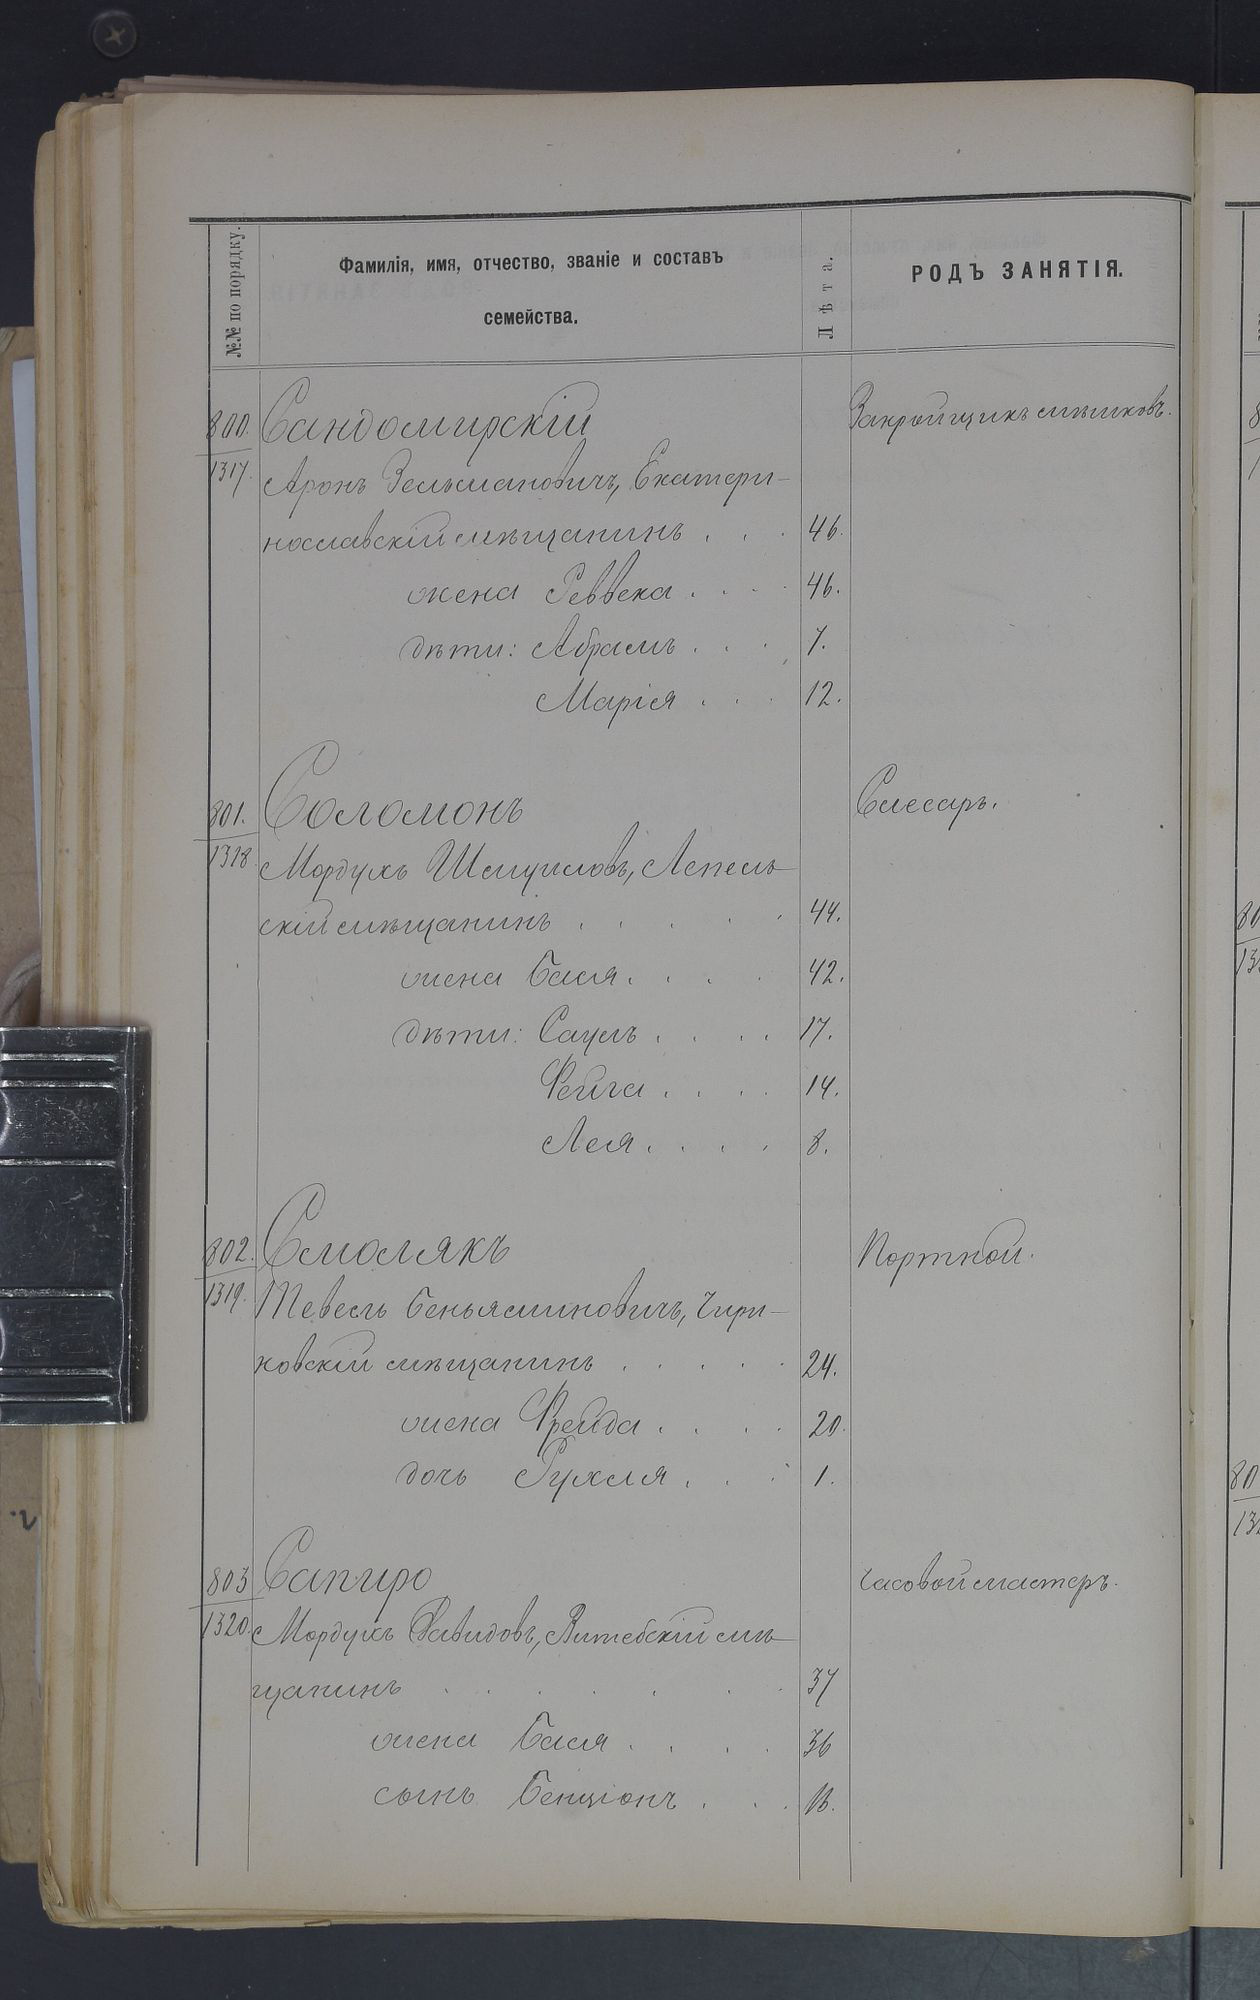 №№ по порядку.
Фамилія, имя, отчество, званіе и составъ
семейства.
Лѣта.
РОДЪ ЗАНЯТІЯ.
800. Сандомирскій Закройщикъ мѣшковъ.
1317. Аронъ Зельмановичъ, Екатери-
нославскій мѣщанинъ . . . 46.
жена Реввека . . . . 46.
дѣти: Абрамъ . . . 7.
Марія . . . 12.
801. Соломонъ Слесарь.
1318. Мордухъ Шмуиловъ, Лепель-
скій мѣщанинъ . . . . . 44.
жена Бася . . . . 42.
дѣти: Сауль . . . . 17.
Фейга . . . . 14.
Лея . . . . 8.
802. Смолякъ Портной.
1319. Тевель Беньяминовичъ, Чири-
ковскій мѣщанинъ . . . . . 24.
жена Фрейда . . . . 20.
дочь Рухля . . . 1.
803 Сапиро Часовой мастеръ.
1320. Мордухъ Давидовъ, Витебскій мѣ-
щанинъ . . . . . . . 37
жена Бася . . . . 36
сынъ Бенціонъ . . .